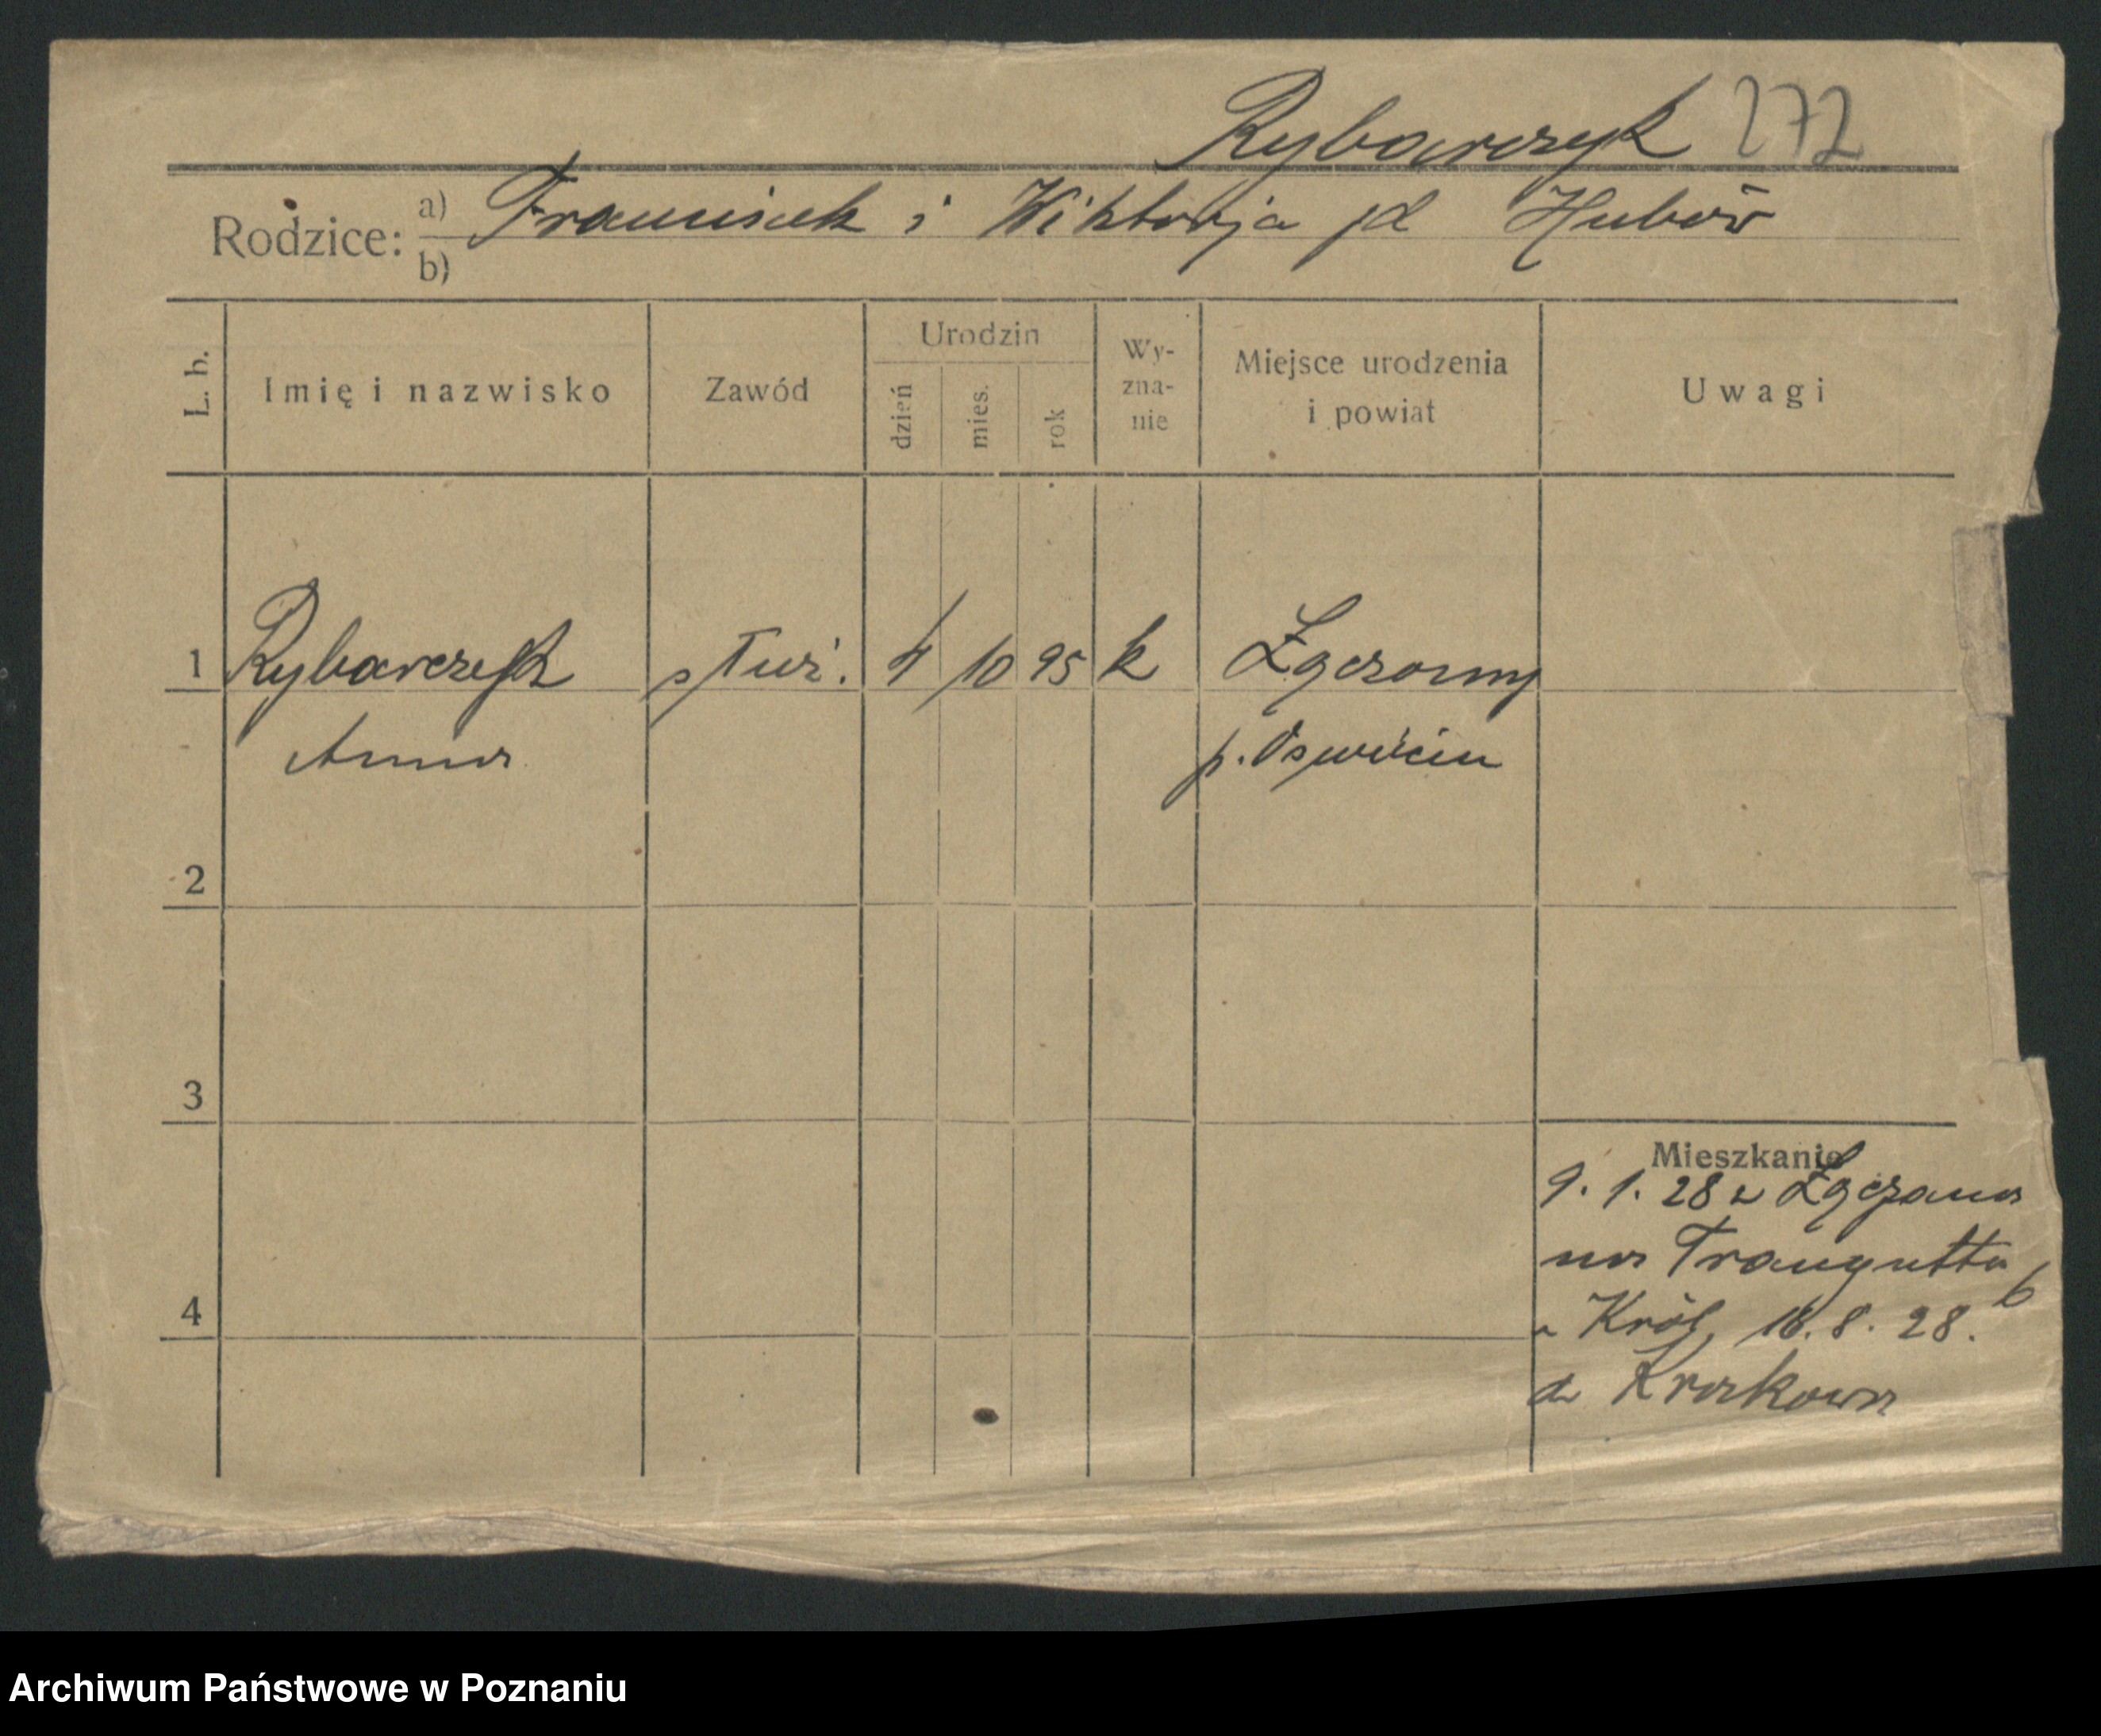 Rybarczyk 272
Rodzice: a) Franciszek i Wiktorja pd Hubów
b)
L. b.
Imię i nazwisko
Zawód
Urodzin
dzień
mies.
rok
Wy-
zna-
nie
Miejsce urodzenia
i powiat
Uwagi
1 Rybarczyk służ. 4/10 95 k
Anna p. Oswięcim
2
3
4
Mieszkanie
9. 1. 28 z
na Traugutta 6
Król, 16. 8. 28.
do Krakowa
Archiwum Państwowe w Poznaniu